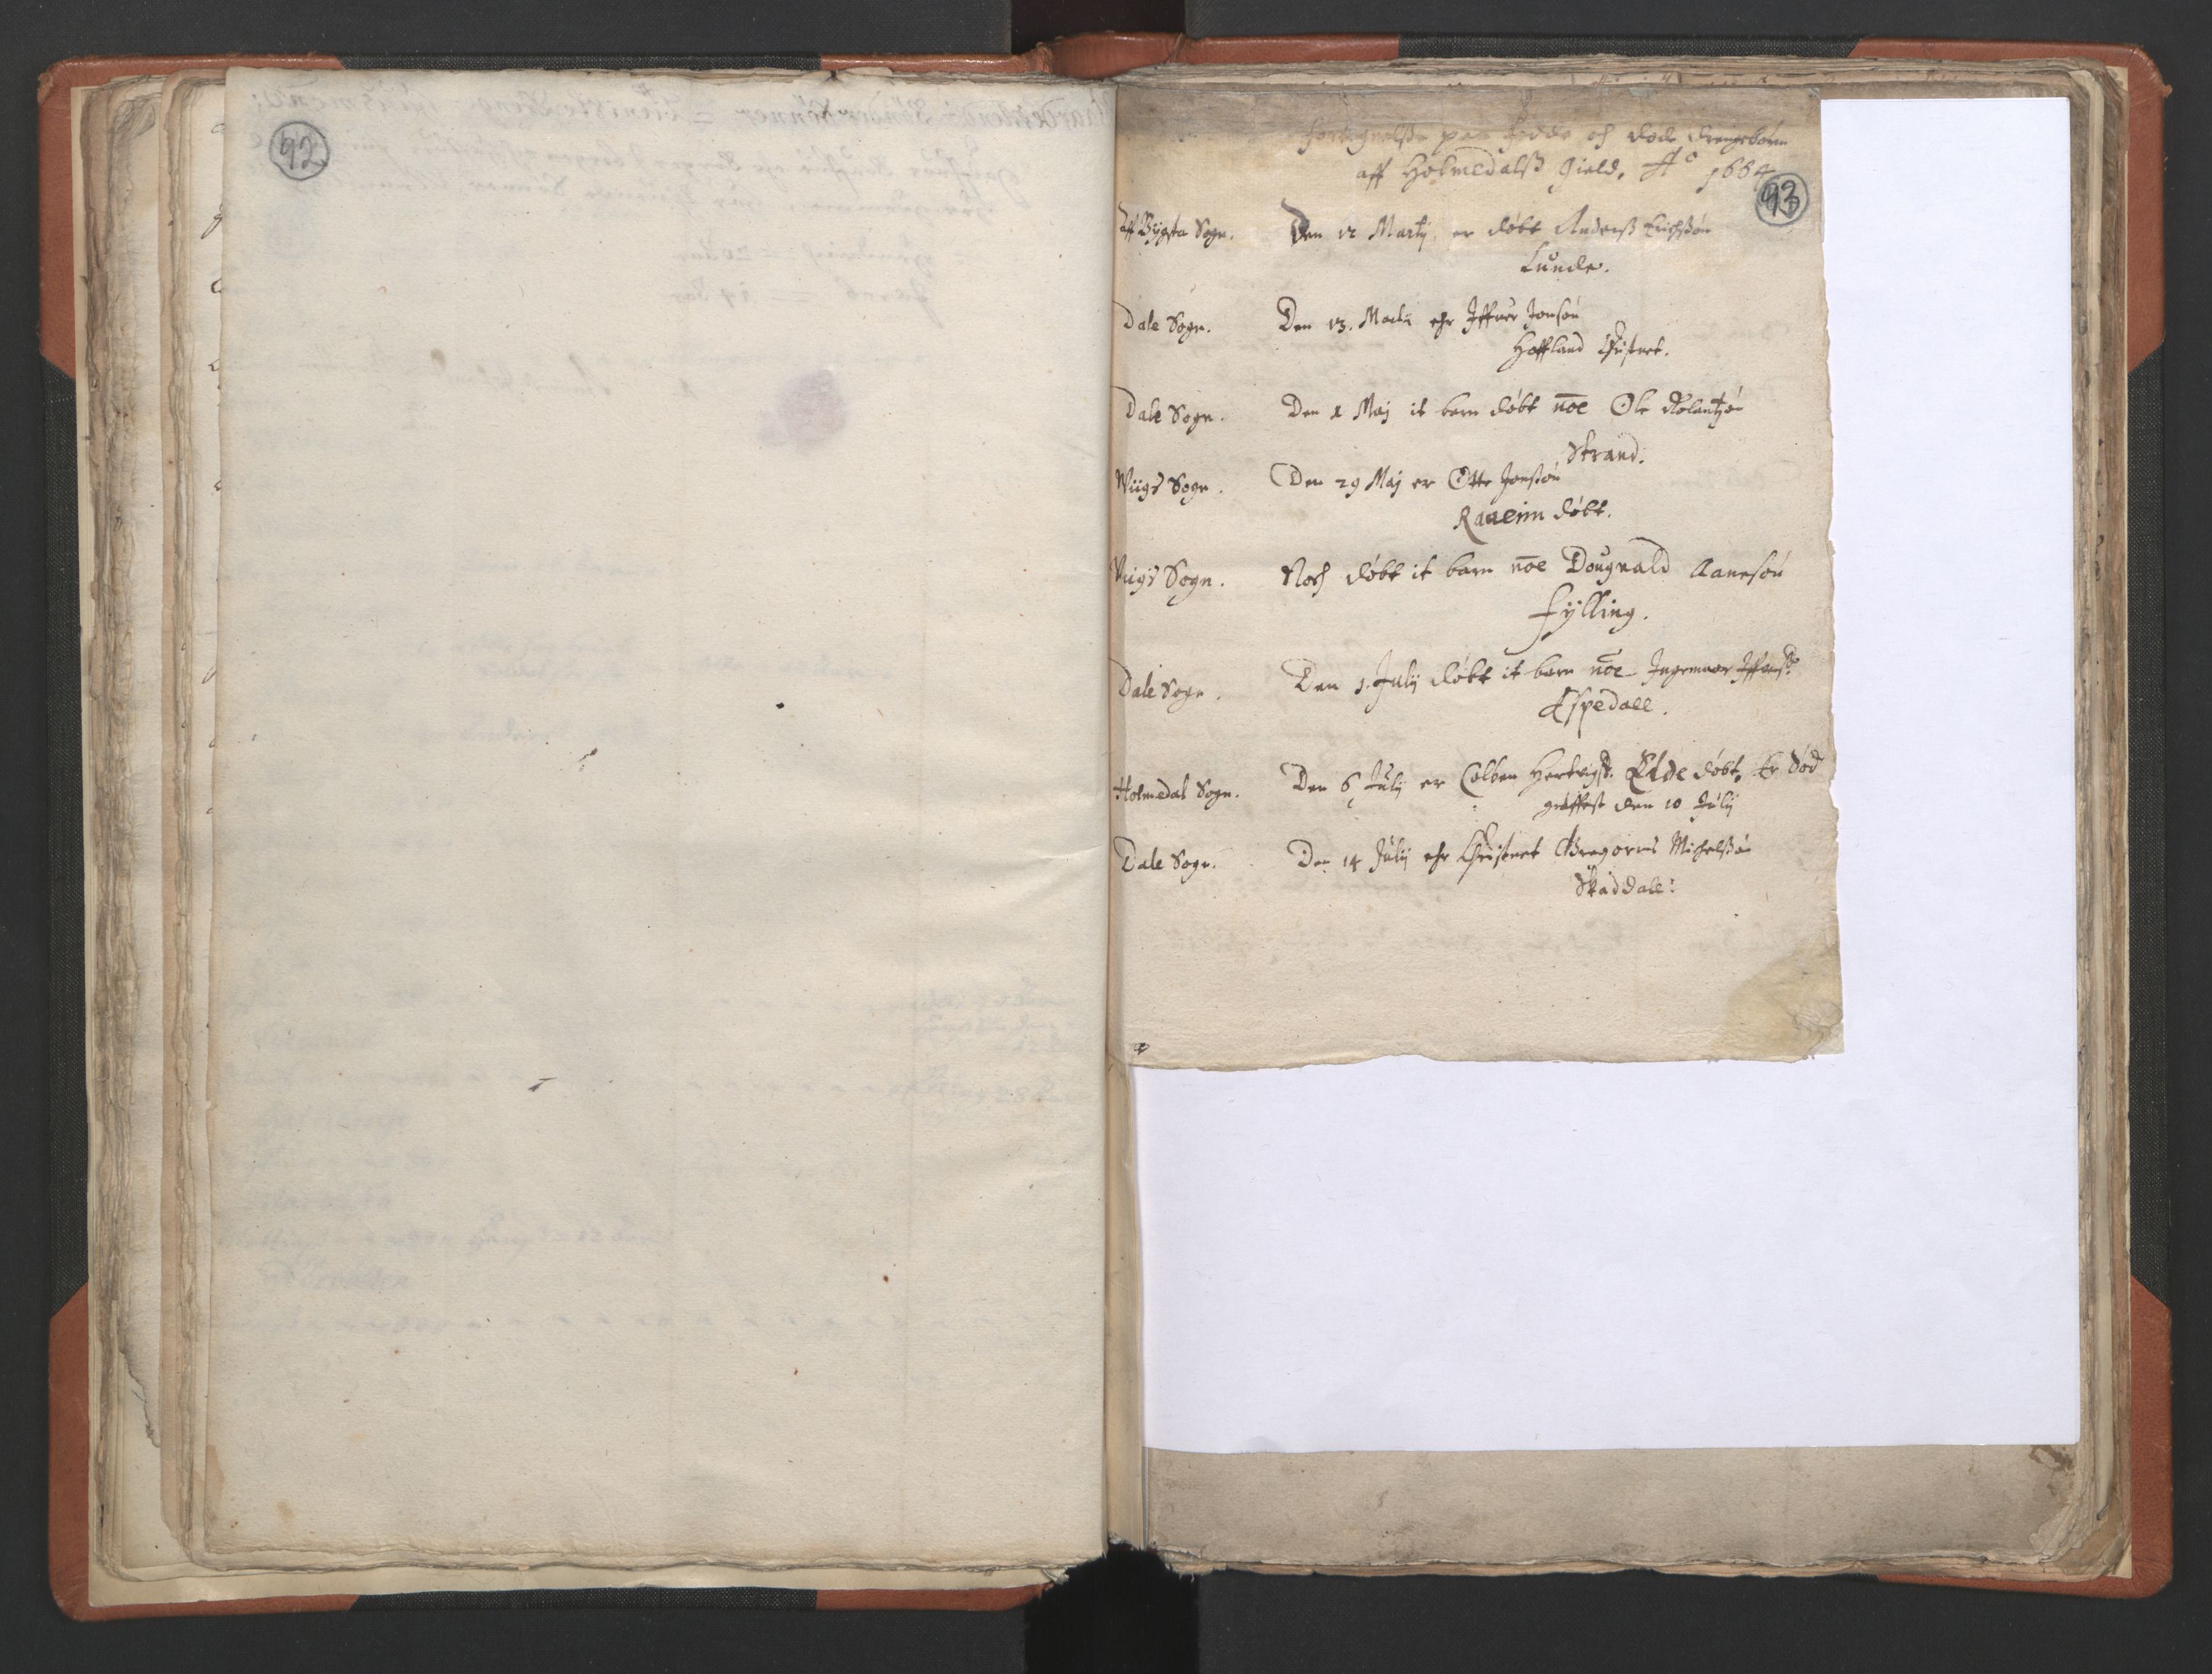 92
93
fortegnelße paa fødde och døde drengebørn
aff Holmedalß gield, Aº 1664
Aff Bygsta Sogn. Den 12 Martij er døbt Anderß Erichßøn
Lunde.
Dale Sogn. Den 13. Martij ehr Iffuer Jonsøn
Hoffland Christnet.
Dale Sogn. Den 1 Maj it barn døbt noe Ole
Strand.
Wiigs Sogn. Den 29 Maj er Otte Jonsøn
Raaeim døbt.
Wiigs Sogn. Noch døbt it barn noe Dougnald Aanesøn
Fylling.
Dale Sogn. Den 1. Julij døbt it barn noe Ingemaar Iffuerß:
Espedall.
Holmedal Sogn. Den 6 Julij er Colben Hertvigß. Elde døbt, Er død
graffest den 10 Julij
Dale Sogn. Den 14 Julij ehr Christnet Gregorius Michelßøn
Skaddall: